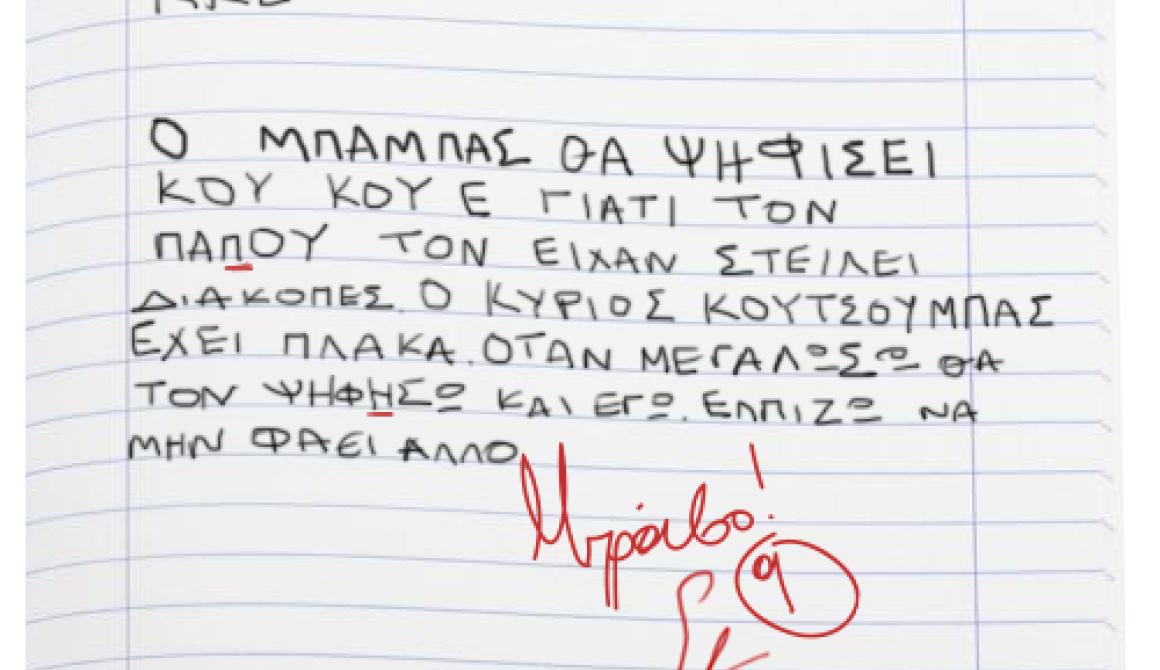 Ο ΜΠΑΜΠΑΣ ΘΑ ΨΗΦΙΣΕΙ
ΚΟΥ ΚΟΥ Ε ΓΙΑΤΙ ΤΟΝ
ΠΑΠΟΥ ΤΟΝ ΕΙΧΑΝ ΣΤΕΙΛΕΙ
ΔΙΑΚΟΠΕΣ. Ο ΚΥΡΙΟΣ ΚΟΥΤΣΟΥΜΠΑΣ
ΕΧΕΙ ΠΛΑΚΑ. ΟΤΑΝ ΜΕΓΑΛΩΣΩ ΘΑ
ΤΟΝ ΨΗΦΗΣΩ ΚΑΙ ΕΓΩ. ΕΛΠΙΖΩ ΝΑ
ΜΗΝ ΦΑΕΙ ΑΛΛΟ
Μπράβο!
9